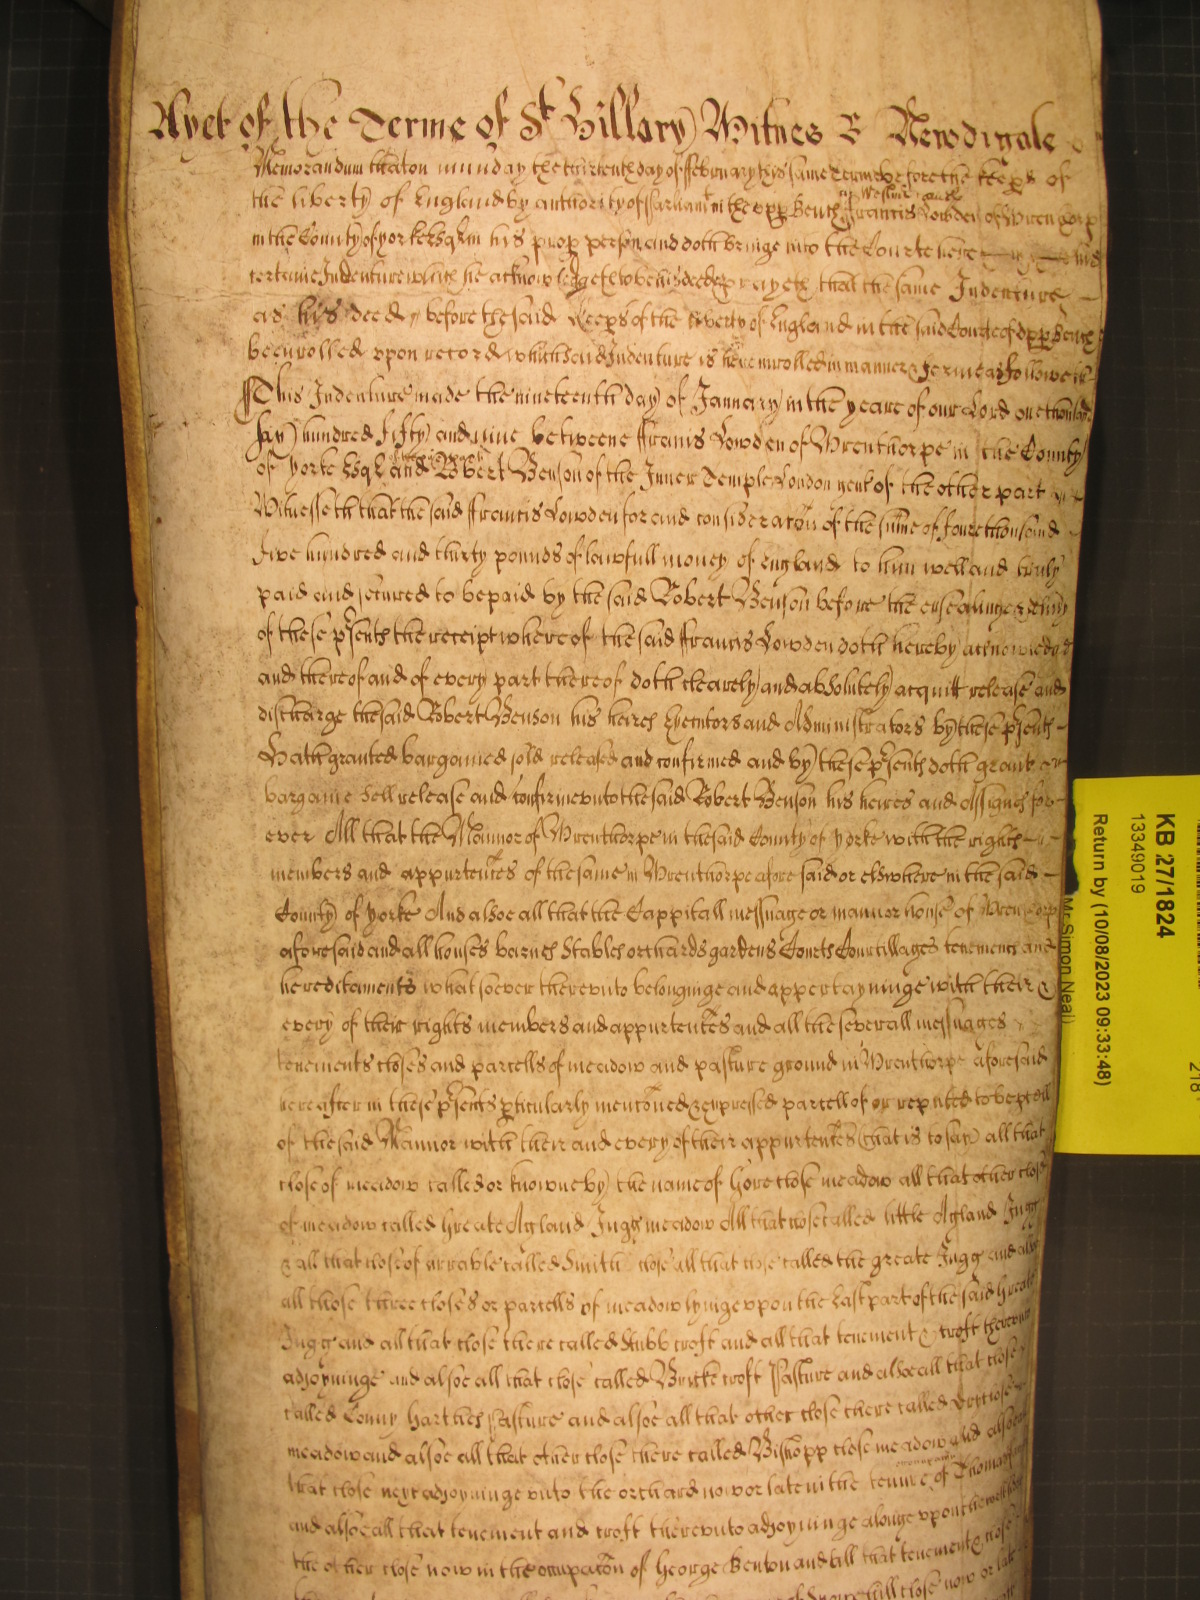 Ayet of the Terme of St Hillary Witnes R Newdigate
Memorandum that on munday the thirtenth day of ffebruary this same terme before the keeps of
the liberty of England by authority of Parliamt in the upp Bench at Westmr came Francis Lowden of Wrenthorp
in the County of yorke Esqr in his prop person and doth bringe into the Courte here
certaine Indenture which he acknowledgeth to be his deede & prayeth that the same Indenture
as his deed before the said keeps of the liberty of England in the said Courte of upp Bench
be enrolled upon record which said Indenture is here inrolled in manner & forme as followeth
This Indenture made the nineteenth day of January in the yeare of our Lord one thousand
six hundred fifty and nine betweene ffrancis Lowden of Wrenthorpe in the County
of yorke Esqr and Robert Benson of the Inner Temple London gent of the other part
Witnesseth that the said ffrancis Lowden for and consideracon of the sume of foure thousand
five hundred and thirty pounds of lawfull money of England to him well and truly
paid and secured to be paid by the said Robert Benson before the ensealinge & delivy
of these psents the receipt whereof the said ffrancis Lowden doth hereby acknowledge
and thereof and of every part thereof doth clearely and absolutely acquitt release and
discharge the said Robert Benson his heires Executors and Administrators by these psents
Hath granted bargained sold released and confirmed and by these psents doth grant
bargaine sell release and confirme unto the said Robert Benson his heires and Assignes for
ever All that the Mannor of Wrenthorpe in the said County of yorke with the rights
members and appurtences of the same in Wrenthorpe aforesaid or elswhere in the said
County of yorke And alsoe all that the Cappitall messuage or mannor house of Wrenthorp
aforesaid and all houses barnes stables orchards gardens Courts Courtillages tenements and
hereditaments whatsoever thereunto belonginge and appertayninge with their &
every of their rights members and appurtences and all the severall messuages
tenements closes and parcells of meadow and pasture ground in Wrenthorpe aforesaid
hereafter in these psents pticularly menconed & expressed parcell of or reputed to be pcell
of the said Mannor with their and every of their appurtences (that is to say) all that
close of meadow called or knowne by the name of Gore close meadow all that other close
of meadow called Greate Agland Ingg meadow All that close called little Agland Ingg
& all that close of arrable called Smith close all that close called the greate Ingg and alsoe
all those three closes or parcells of meadow lyinge upon the East part of the said Greate
Ingg and all that close there called Stubb croft and all that tenement & croft thereunto
adjoyninge and alsoe all that close called Bricke croft Pasture and alsoe all that close
called Conny Garthes Pasture and alsoe all that other close there called
meadow and alsoe all that other close there called Bishopp close meadow and alsoe
that close next adjoyninge unto the orchard now or late in the tenure of Thomas
and alsoe all that tenement and croft thereunto adjoyninge alonge upon the
the other close now in the occupacon of George Benton and all that tenement & close
hill close now or late
KB 27/1824
13349019
Return by (10/08/2023 09:33:48)
Mr Simon Neal)
218